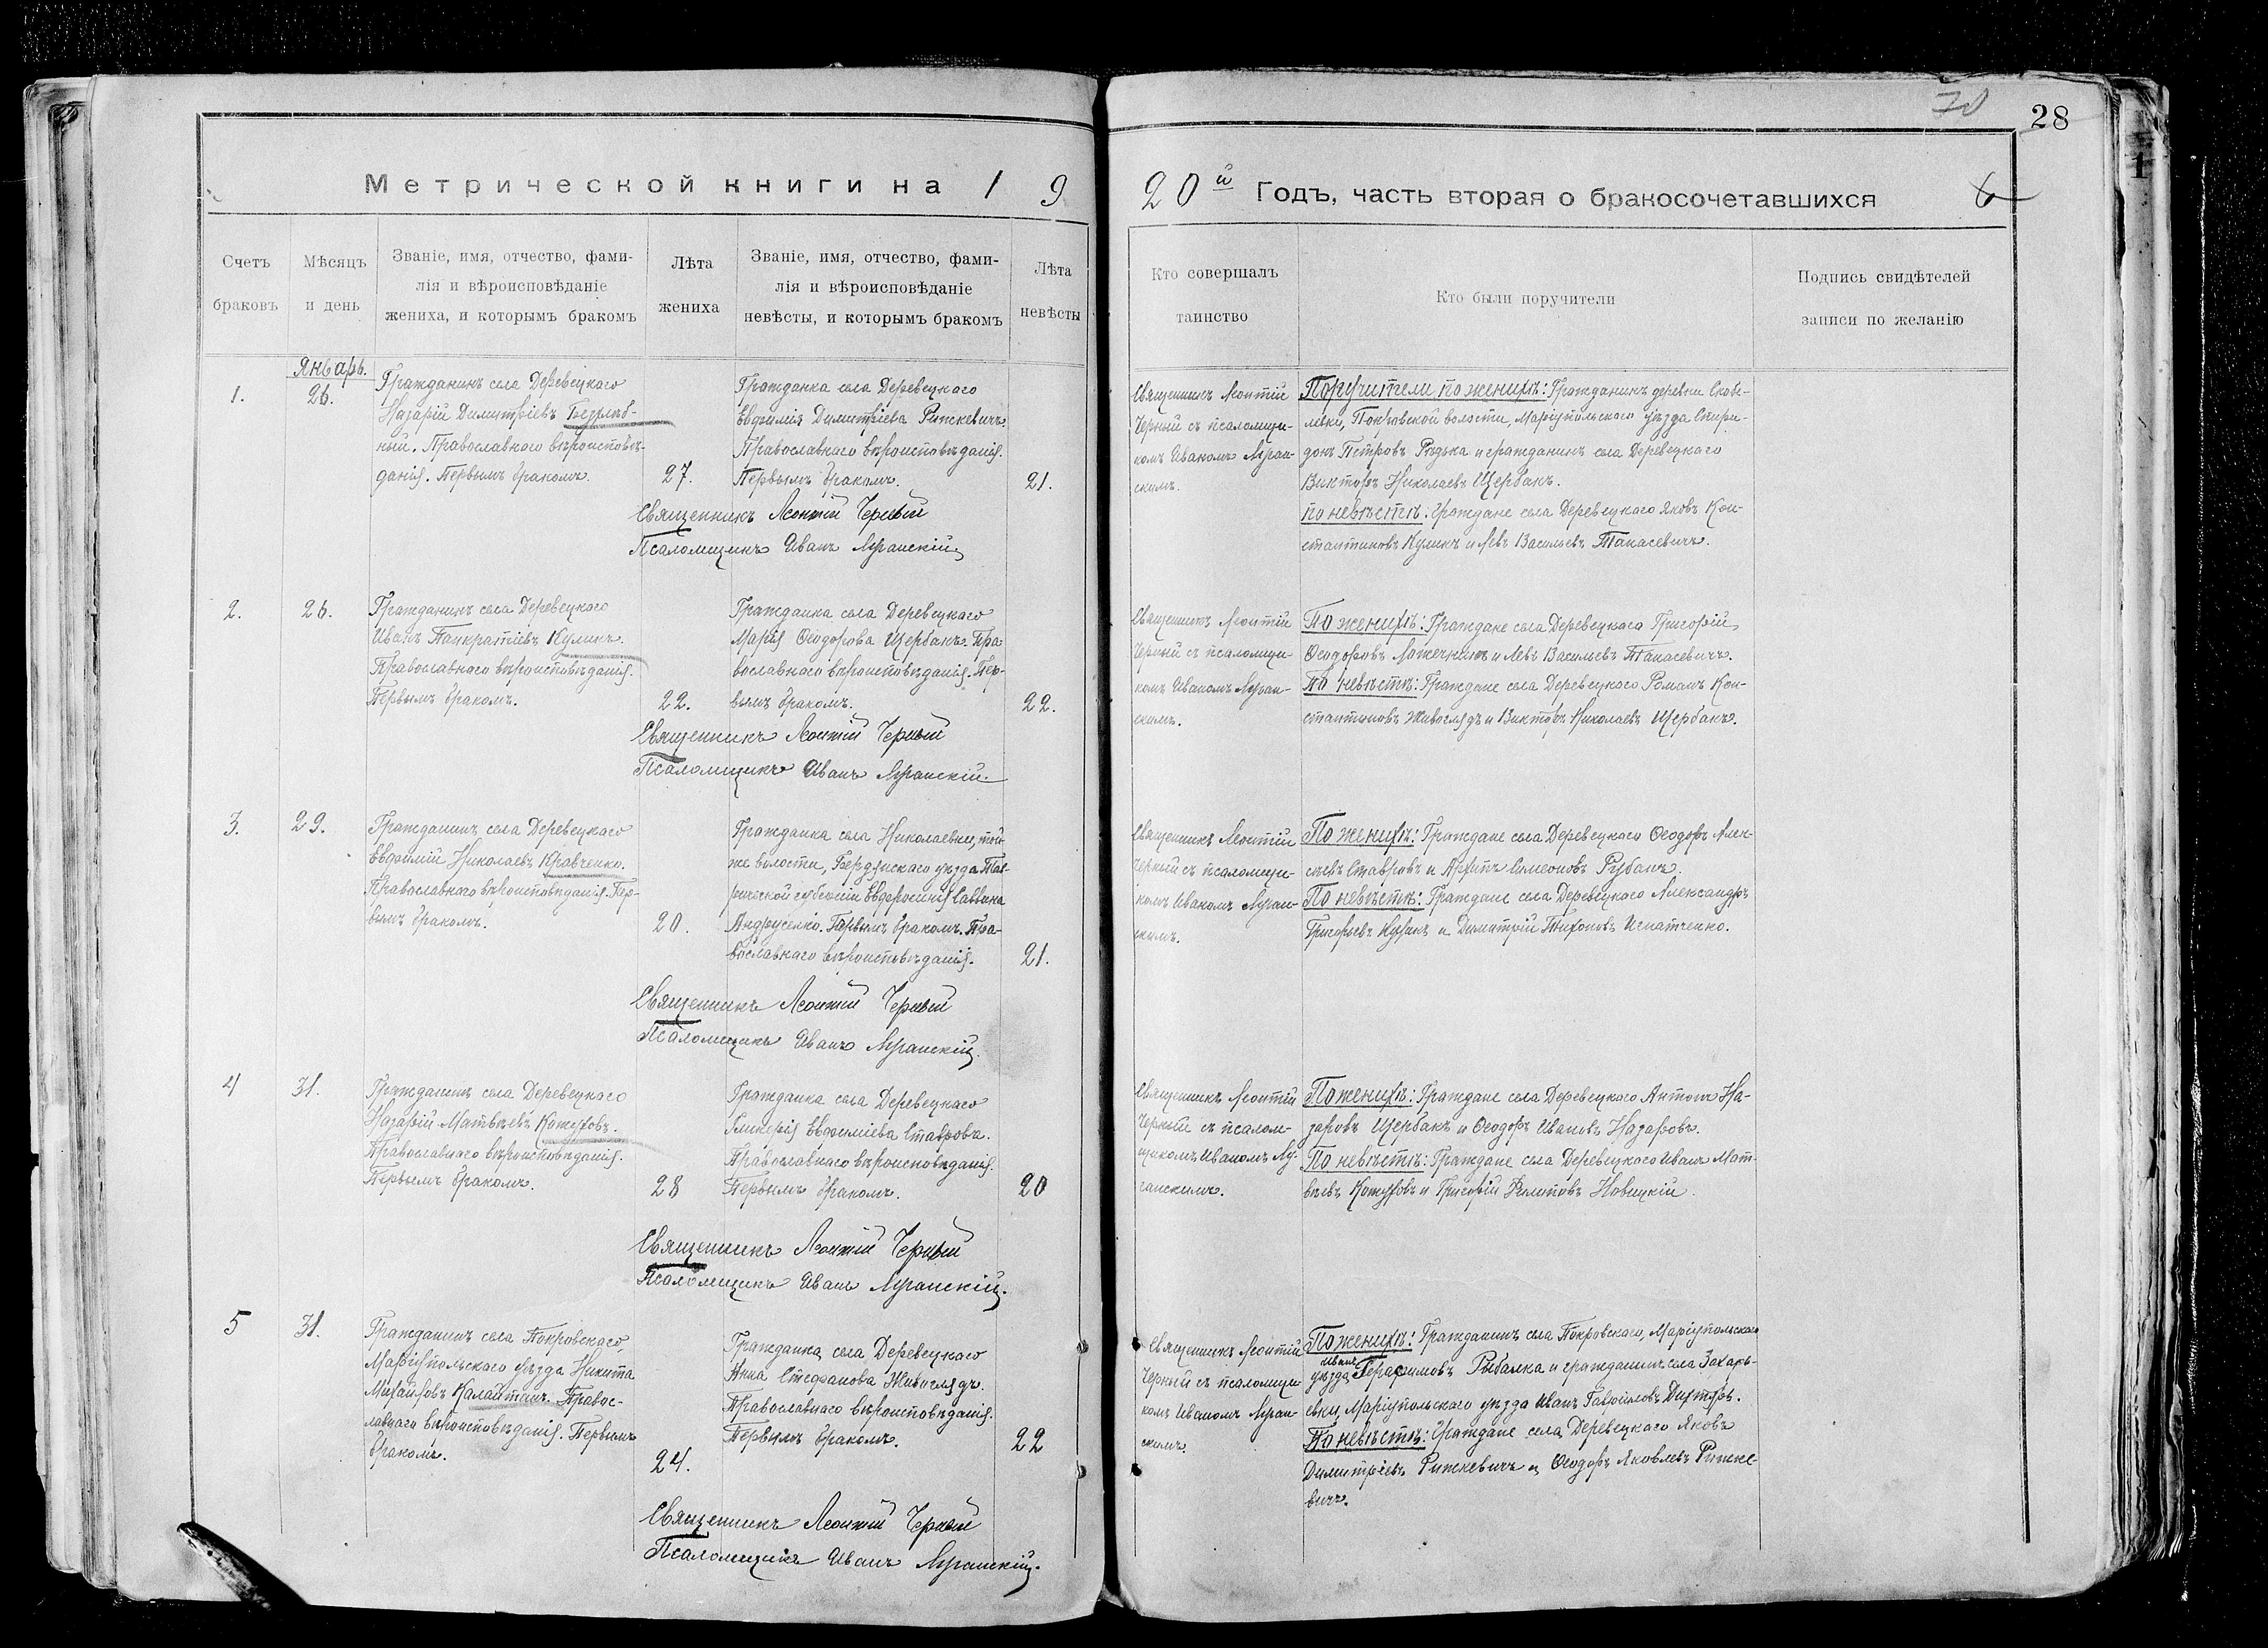 70
28
Метрической книги на 1 9
20й Годъ, часть вторая о бракосочетавшихся
6
Счетъ
браковъ
Мѣсяцъ
и день
Званіе, имя, отчество, фами-
лія и вѣроисповѣданіе
жениха, и которымъ бракомъ
Лѣта
жениха
Званіе, имя, отчество, фами-
лія и вѣроисповѣданіе
невѣсты, и которымъ бракомъ
Лѣта
невѣсты
Кто совершалъ
таинство
Кто были поручители
Подпись свидѣтелей
записи по желанію
Январь.
1.
26.
Гражданинъ села Деревецкаго
Назарій Димитріевъ Безхлѣб-
ный. Православнаго вѣроисповѣ-
данія. Первымъ бракомъ.
27.
Гражданка села Деревецкаго
Евфимія Димитріева Рипкевичъ.
Православнаго вѣроисповѣданія.
Первымъ бракомъ.
21.
Священникъ Леонтій Черный
Псаломщикъ Иванъ Луганскій
Священникъ Леонтій
Черный съ псаломщи-
комъ Иваномъ Луган-
скимъ.
Поручители по женихѣ: Гражданинъ деревни Скобе-
левки, Покровской волости, Маріупольскаго уѣзда Спири-
донъ Петровъ Рядька и гражданинъ села Деревецкаго
Викторъ Николаевъ Щербакъ.
По невѣстѣ: Граждане села Деревецкаго Яковъ Кон-
стантиновъ Куликъ и Левъ Васильевъ Танасевичъ.
2.
26.
Гражданинъ села Деревецкаго
Иванъ Панкратіевъ Куликъ.
Православнаго вѣроисповѣданія.
Первымъ бракомъ.
22.
Гражданка села Деревецкаго
Марія Ѳеодорова Щербакъ. Пра
вославнаго вѣроисповѣданія. Пер-
вымъ бракомъ.
22.
Священникъ Леонтій Черный
Псаломщикъ Иванъ Луганскій.
Священникъ Леонтій
Черный съ псаломщи-
комъ Иваномъ Луган-
скимъ.
По женихѣ: Граждане села Деревецкаго Григорій
Ѳеодоровъ Ложечникъ и Левъ Васильевъ Танасевичъ.
По невѣстѣ: Граждане села Деревецкаго Романъ Кон-
стантиновъ Живоглядъ и Викторъ Николаевъ Щербакъ.
3.
29.
Гражданинъ села Деревецкаго
Евфимій Николаевъ Кравченко.
Православнаго вѣроисповѣданія. Пер-
вымъ бракомъ.
20.
Гражданка села Николаевки, той
же волости, Бердянскаго уѣзда Тав-
рической губерніи Евфросинія Саввина
Андрусенко. Первымъ бракомъ. Пра-
вославнаго вѣроисповѣданія.
21.
Священникъ Леонтій Черный
Псаломщикъ Иванъ Луганскій.
Священникъ Леонтій
Черный съ псаломщи-
комъ Иваномъ Луган-
скимъ.
По женихѣ: Граждане села Деревецкаго Ѳеодоръ Алек-
сѣевъ Ставровъ и Архипъ Симеоновъ Рубанъ.
По невѣстѣ: Граждане села Деревецкаго Александръ
Григорьевъ и Димитрій Тихоновъ Игнатченко.
4
31.
Гражданинъ села Деревецкаго
Назарій Матвѣевъ Кожуховъ.
Православнаго вѣроисповѣданія.
Первымъ бракомъ.
28
Гражданка села Деревецкаго
Гликерія Евфиміева Ставрова.
Православнаго вѣроисповѣданія.
Первымъ бракомъ.
20
Священникъ Леонтій Черный
Псаломщикъ Иванъ Луганскій.
Священникъ Леонтій
Черный съ псалом-
щикомъ Иваномъ Лу-
ганскимъ.
По женихѣ: Граждане села Деревецкаго Антонъ На-
заровъ Щербакъ и Ѳеодоръ Ивановъ Назаровъ.
По невѣстѣ: Граждане села Деревецкаго Иванъ Мат-
вѣевъ Кожуховъ и Григорій Филиповъ Новицкій.
5
31.
Гражданинъ села Покровскаго,
Маріупольскаго уѣзда Никита
Михайловъ Калайтанъ. Правос-
лавнаго вѣроисповѣданія. Первымъ
бракомъ.
24.
Гражданка села Деревецкаго
Анна Стефанова Живоглядъ.
Православнаго вѣроисповѣданія.
Первымъ бракомъ.
22
Священникъ Леонтій Черный
Псаломщикъ Иванъ Луганскій.
Священникъ Леонтій
Черный съ псаломщи-
комъ Иваномъ Луган-
скимъ.
По женихѣ: Гражданинъ села Покровскаго, Маріупольскаго
уѣзда Иванъ Герасимовъ Рыбалка и гражданинъ села Захарь-
евки, Маріупольскаго уѣзда Иванъ Гавриловъ Дихтяръ.
По невѣстѣ: Граждане села Деревецкаго Яковъ
Димитріевъ Рипкевичъ и Ѳеодоръ Яковлевъ Рипке-
вичъ.